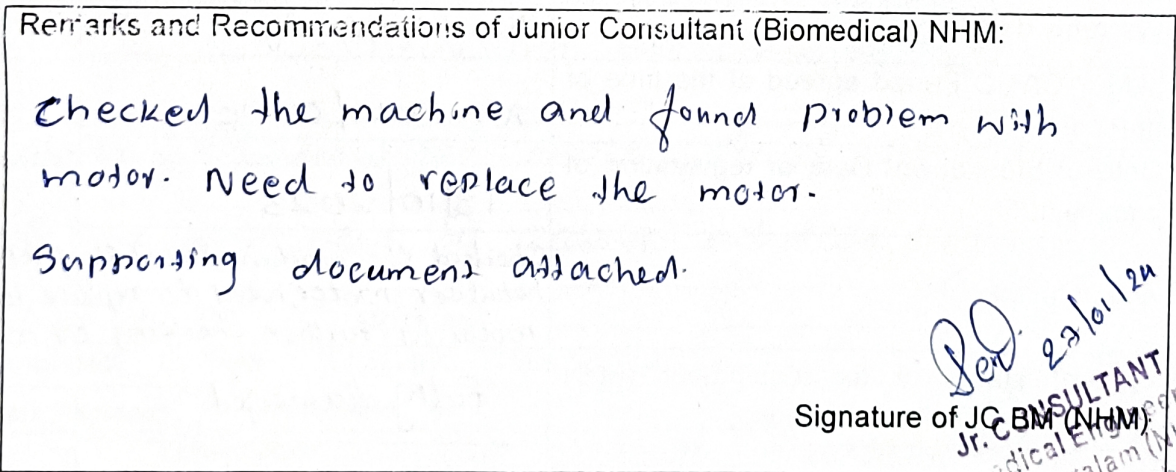 Remarks and Recommendations of Junior Consultant (Biomedical) NHM:
Checked the machine and found problem with
motor. Need to replace the motor.
Supporting document attached.
22/01/24
Signature of JC BM (NHM)
Jr. CONSULTANT